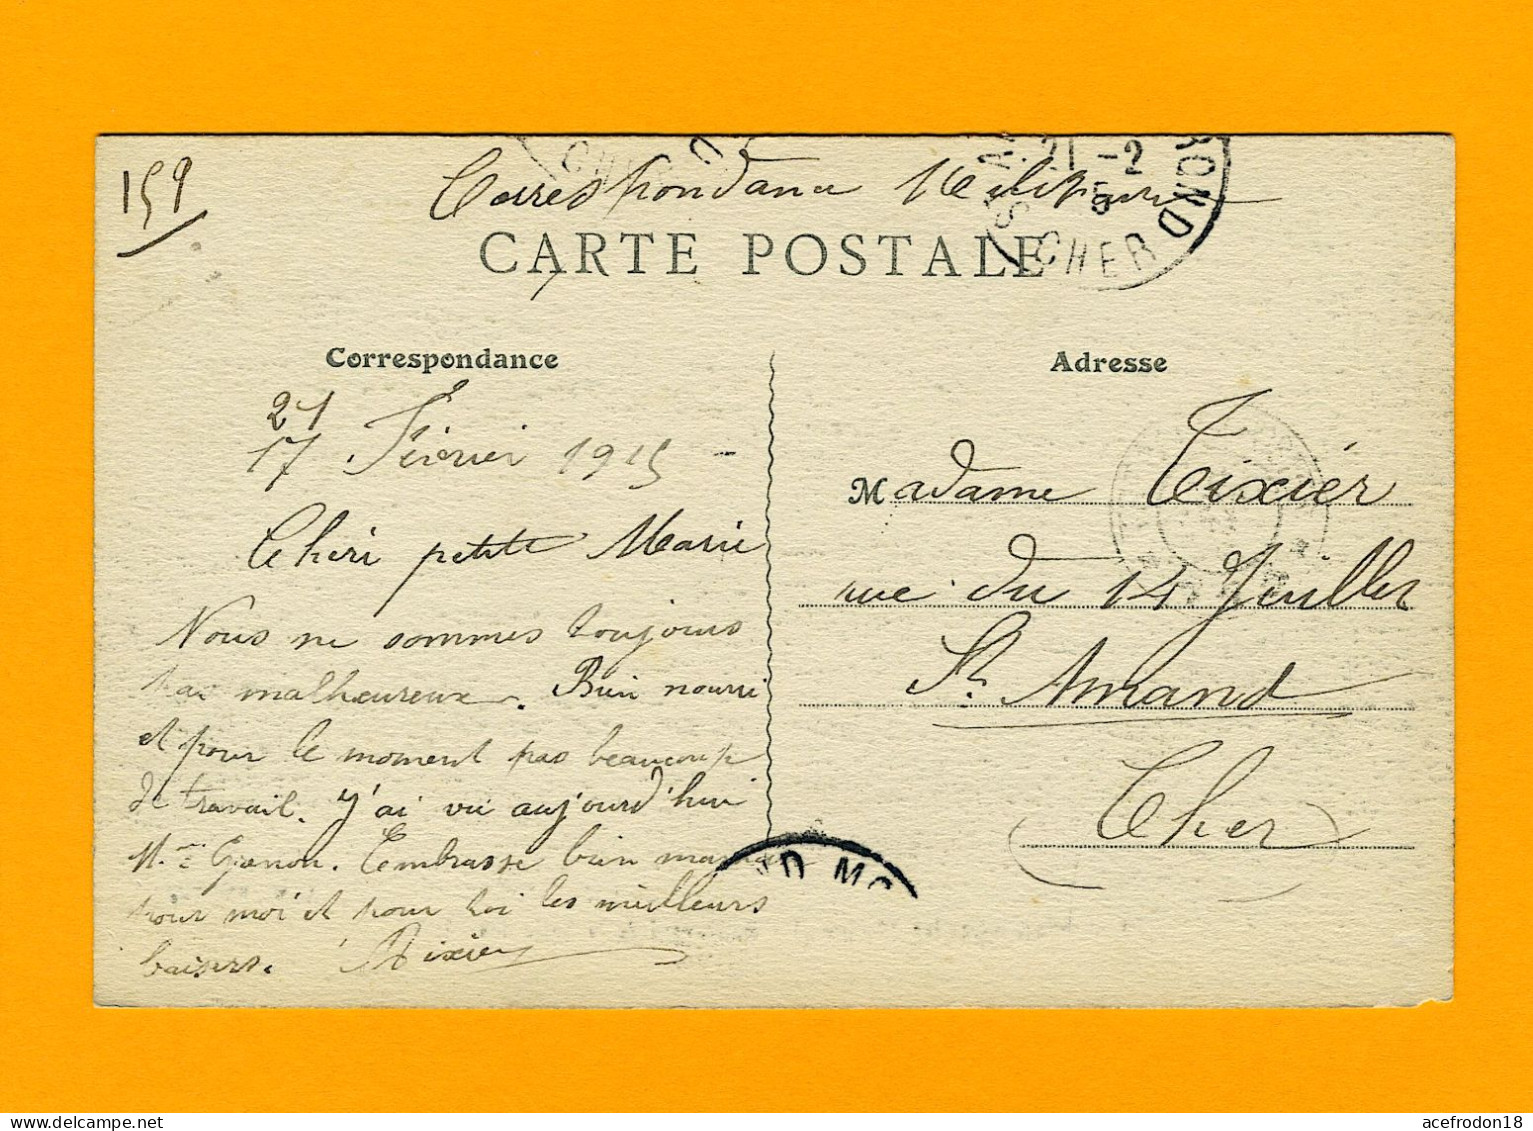 159
Correspondance Militaire
CARTE POSTALE
21 -2
CHER
Correspondance
Adresse
21
17 Février 1915 -
Chéri petite Marie
Nous ne sommes toujours
pas malheureux. Bien nourri
et pour le moment pas beaucoup
de travail. J'ai vu aujourd'hui
M. Genon. Embrasse bien maman
pour moi et pour toi les meilleurs
baisers. Tixier
Madame Tixier
rue du 14 Juillet
St Amand
(Cher)
ND MO
delcampe.net
acefrodon18